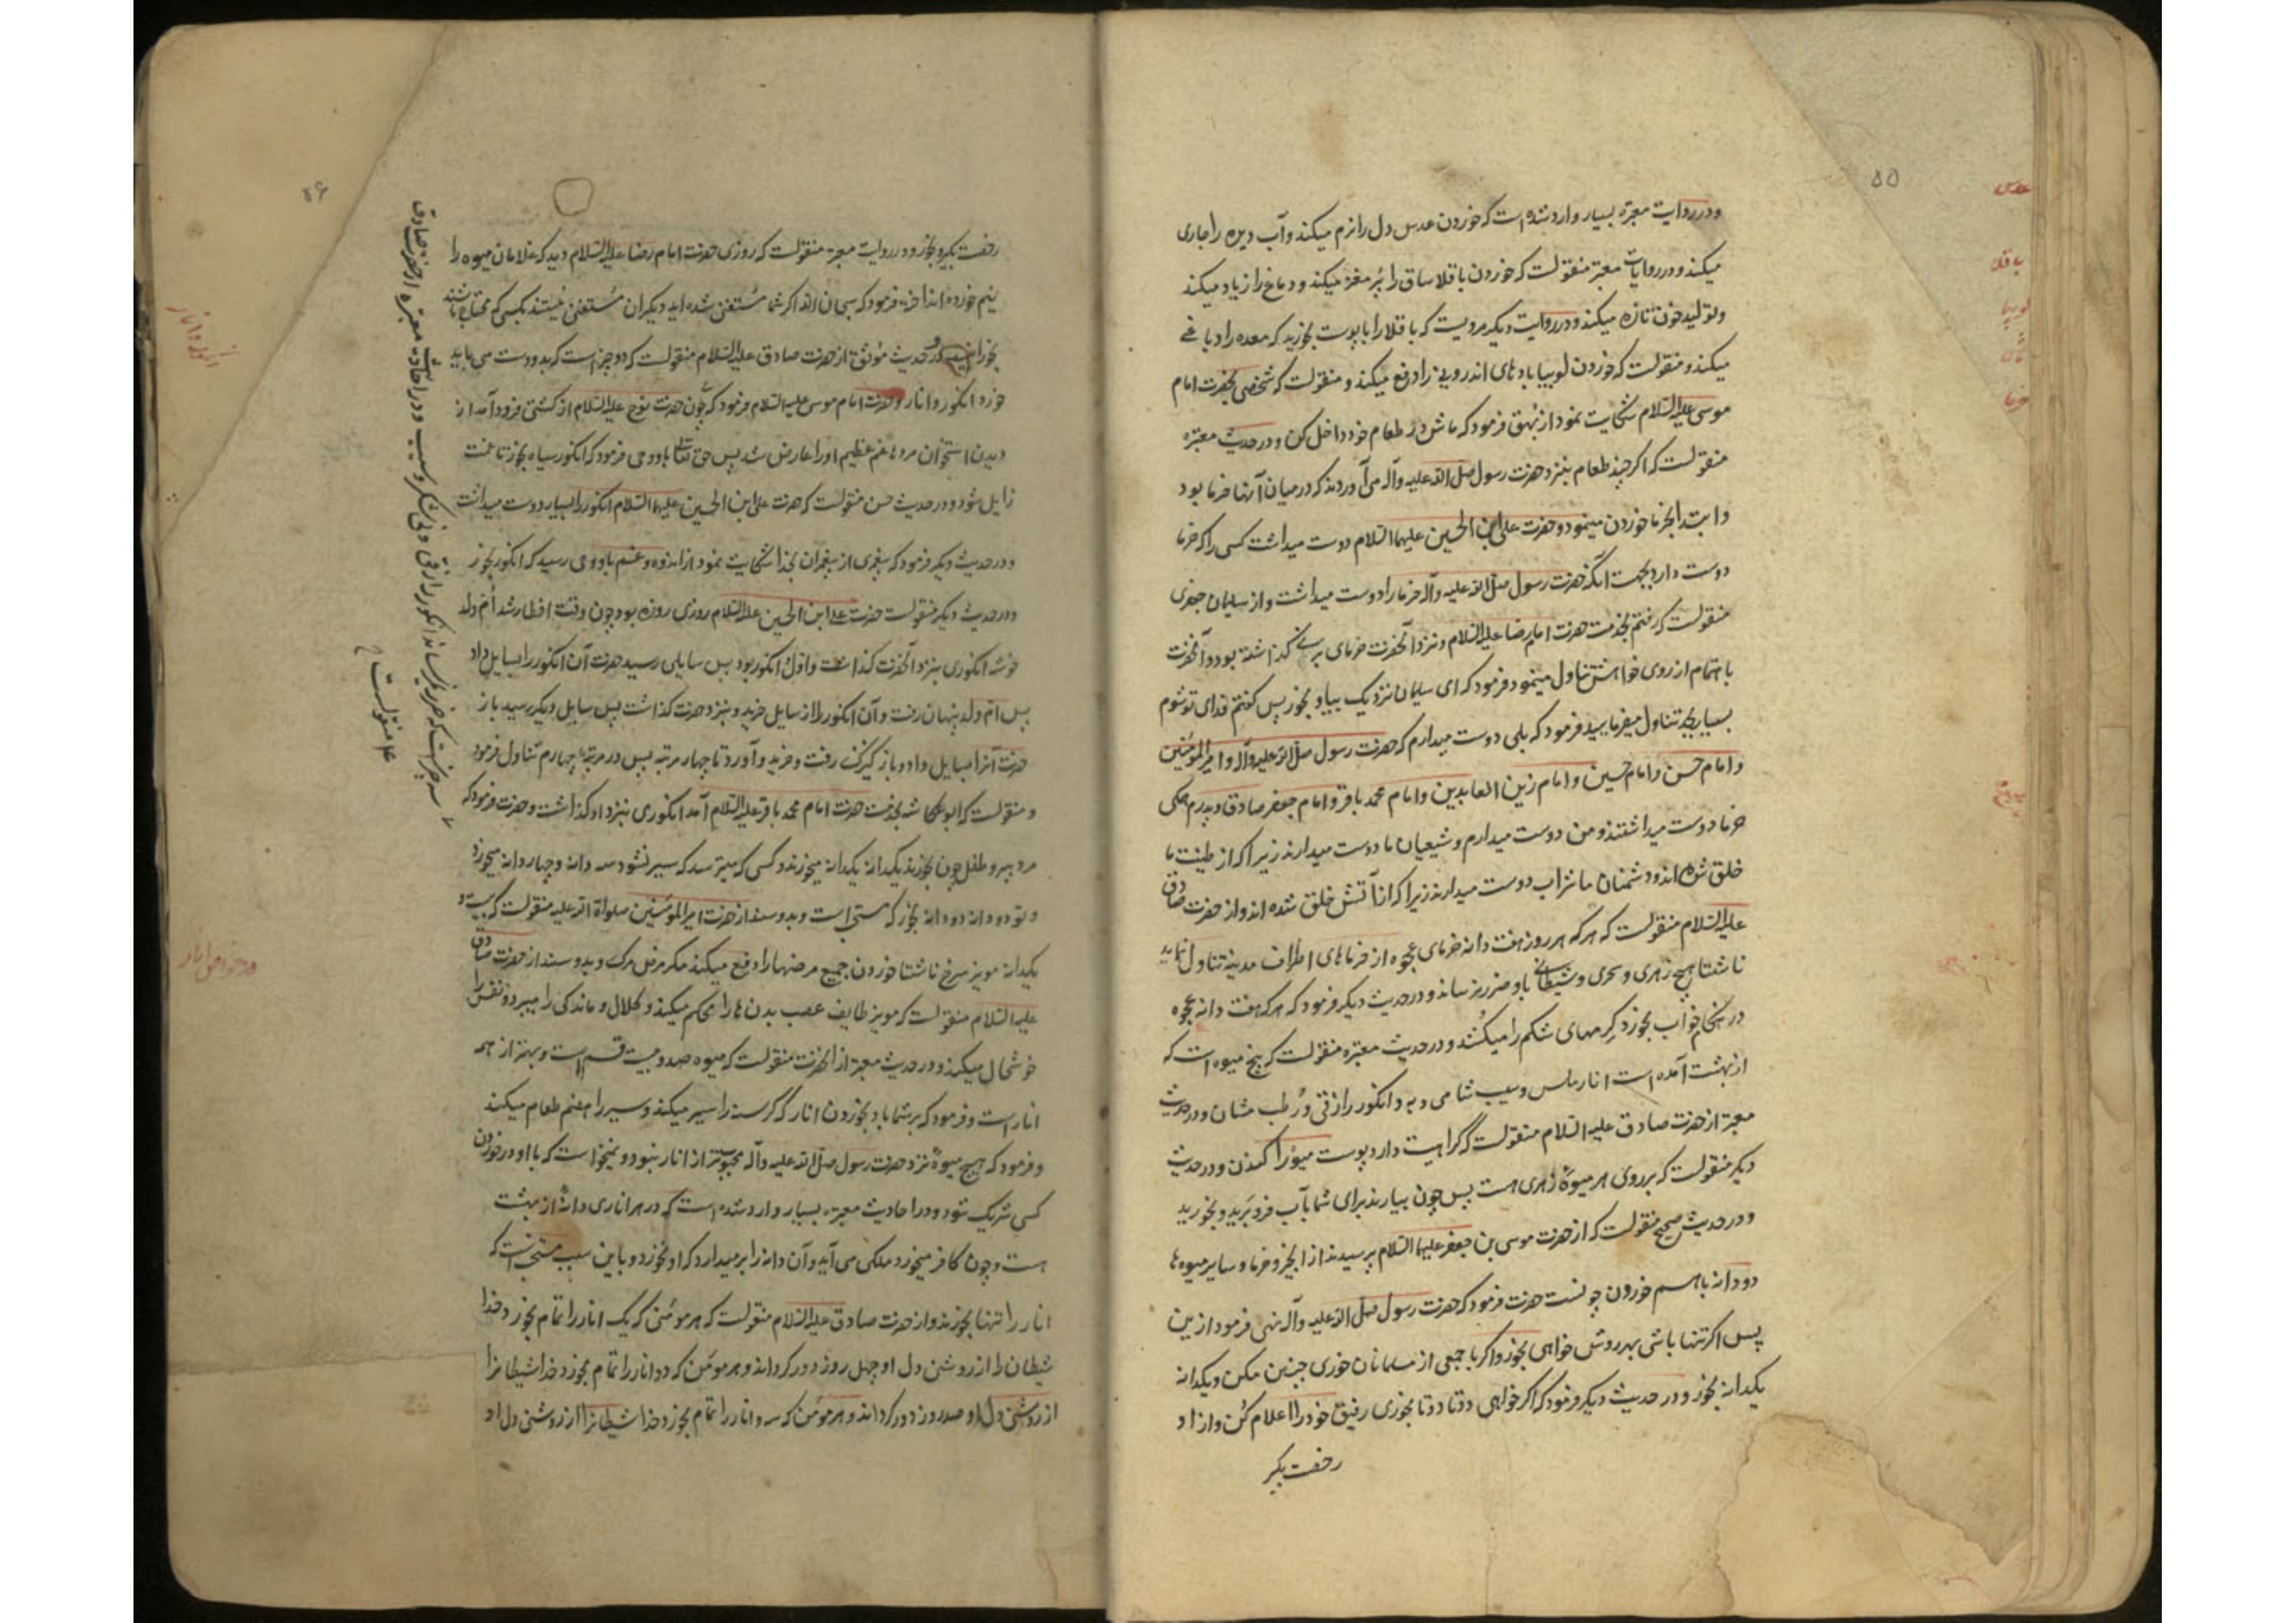 ۵۵
عدس
باقلا
لوبیا
ماش
خرما
ودر روایت معتبره بسیار وارد شده است که خوردن عدس دل را نرم میکند و آب دیده را جاری
میکند و در روایات معتبر منقولست که خوردن باقلا ساق را پُر مغز میکند و دماغ را زیاد میکند
و تولید خون تازه میکند و در روایت دیگر مرویست که باقلا را با پوست بخورید که معده را دباغی
میکند و منقولست که خوردن لوبیا بادهای اندرونی را دفع میکند و منقولست که شخصی بحضرت امام
موسی علیه السلام شکایت نمود از بَهَق فرمود که ماش در طعام خود داخل کن و در حدیث معتبره
منقولست که اکر چند طعام بنزد حضرت رسول صلی الله علیه وآله می آوردند که در میان آنها خرما بود
و ابتدا بخرما خوردن مینمود و حضرت علی ابن الحسین علیهما السلام دوست میداشت کسی را که خرما
دوست دارد بجهت آنکه حضرت رسول صلی الله علیه وآله خرما را دوست میداشت و از سلیمان جعفری
منقولست که رفتم بخدمت حضرت امام رضا علیه السلام و نزد آنحضرت خرمای برنی گذاشته بود و آنحضرت
باهتمام از روی خواهش تناول مینمود فرمود که ای سلیمان نزدیک بیا و بخور پس گفتم فدای تو شوم
بسیار بجد تناول میفرمایید فرمود که بلی دوست میدارم که حضرت رسول صلی الله علیه وآله و امیرالمؤمنین
و امام حسن و امام حسین و امام زین العابدین و امام محمد باقر و امام جعفر صادق و پدرم همکی
خرما دوست میداشتند و من دوست میدارم و شیعیان ما دوست میدارند زیرا که از طینت ما
خلق شده اند و دشمنان ما شراب دوست میدارند زیرا که از آتش خلق شده اند و از حضرت صادق
علیه السلام منقولست که هر که هر روز هفت دانه خرمای عجوه از خرماهای اطراف مدینه تناول نماید
ناشتا هیچ زهری و سحری و شیطانی باو ضرر نرساند و در حدیث دیگر فرمود که هر که هفت دانه عجوه
در هنگام خواب بخورد کرمهای شکم را میکُشد و در حدیث معتبره منقولست که پنج میوه است که
از بهشت آمده است انار ملس و سیب شامی و به و انکور رازقی و رُطب مشان و در حدیث
معتبر از حضرت صادق علیه السلام منقولست که کراهیت دارد پوست میوه را کندن و در حدیث
دیگر منقولست که بر روی هر میوهٔ زهری هست پس چون بیارند برای شما بآب فرو بَرید و بخورید
و در حدیث صحیح منقولست که از حضرت موسی بن جعفر علیهما السلام پرسیدند از انجیر و خرما و سایر میوه ها
دو دانه با هم خوردن چونست حضرت فرمود که حضرت رسول صلی الله علیه وآله نهی فرمود ازین
پس اکر تنها باشی بهر روش خواهی بخور و اکر با جمعی از مسلمانان خوری چنین مکن و یکدانه
یکدانه بخور و در حدیث دیگر فرمود که اکر خواهی دوتا دوتا بخوری رفیق خود را اعلام کن و از او
رخصت بگیر
۵۶
رخصت بگیر و بخور و در روایت معتبره منقولست که روزی حضرت امام رضا علیه السلام دید که غلامان میوه را
نیم خورده انداخته فرمود که سبحان الله اکر شما مُستغنی شده اید دیگران مُستغنی نیستند بکسی که محتاج باشند
بخورانید و در حدیث مؤثق از حضرت صادق علیه السلام منقولست که دو چیز است که بدو دست می باید
خورد انکور و انار و حضرت امام موسی علیه السلام فرمود که چون حضرت نوح علیه السلام از کشتی فرود آمد از
دیدن استخوان مردها غم عظیم او را عارض شد پس حق تعالی باو وحی فرمود که انکور سیاه بخور تا غمت
زایل شود و در حدیث حسن منقولست که حضرت علی ابن الحسین علیهما السلام انکور را بسیار دوست میداشت
و در حدیث دیگر فرمود که پیغمبری از پیغمبران بخدا شکایت نمود از اندوه و غم باو وحی رسید که انکور بخور
و در حدیث دیگر منقولست حضرت علی ابن الحسین علیه السلام روزی روزه بود چون وقت افطار شد اُمّ ولد
خوشه انکوری بنزد آنحضرت گذاشت و اوّل انکور بود پس سایلی رسید حضرت آن انکور را بسایل داد
پس امّ ولد پنهان رفت و آن انکور را از سایل خرید و بنزد حضرت گذاشت پس سایل دیگر رسید باز
حضرت آنرا بسایل داد و باز کنیزک رفت و خرید و آورد تا چهار مرتبه پس در مرتبهٔ چهارم تناول فرمود
و منقولست که ابو عکاشه بخدمت حضرت امام محمد باقر علیه السلام آمد انکوری بنزد او گذاشت و حضرت فرمود که
مرد پیر و طفل چون بخورند یکدانه یکدانه میخورند و کسی که میترسد که سیر نشود سه دانه و چهار دانه میخورد
و تو دو دانه دو دانه بخور که سنتی است و بدو سند از حضرت امیرالمؤمنین صلواة الله علیه منقولست که بیست و
یکدانه مویز سرخ ناشتا خوردن جمیع مرضها را دفع میکند مکر مرض مرگ و بدو سند از حضرت صادق
علیه السلام منقولست که مویز طایف عصب بدن ها را محکم میکند و کلال و ماندگی را میبرد و نفس را
خوشحال میکند و در حدیث معتبر از آنحضرت منقولست که میوه صد و بیست قسم است و بهتر از همه
انار است و فرمود که بر شما باد بخوردن انار که گرسنه را سیر میکند و سیر را هضم طعام میکند
و فرمود که هیچ میوهٔ نزد حضرت رسول صلی الله علیه وآله محبوبتر از انار نبود و نمیخواست که با او در خوردن
کسی شریک شود و در احادیث معتبره بسیار وارد شده است که در هر اناری دانهٔ از بهشت
هست و چون کافر میخورد ملکی می آید و آن دانه را برمیدارد که او نخورد و باین سبب سنتی است که
انار را تنها بخورند و از حضرت صادق علیه السلام منقولست که هر مومنی که یک انار را تمام بخورد خدا
شیطان را از روشنی دل او چهل روز دور گرداند و هر مومن که دو انار را تمام بخورد خدا شیطانرا
از روشنی دل او صد روز دور گرداند و هر مومن که سه انار را تمام بخورد خدا شیطانرا از روشنی دل او
سه چیز است که ضرر نمیرساند انکور رازقی و نی شکر و سیب و در احادیث معتبره از حضرت صادق
ع منقولست
انکور و انار